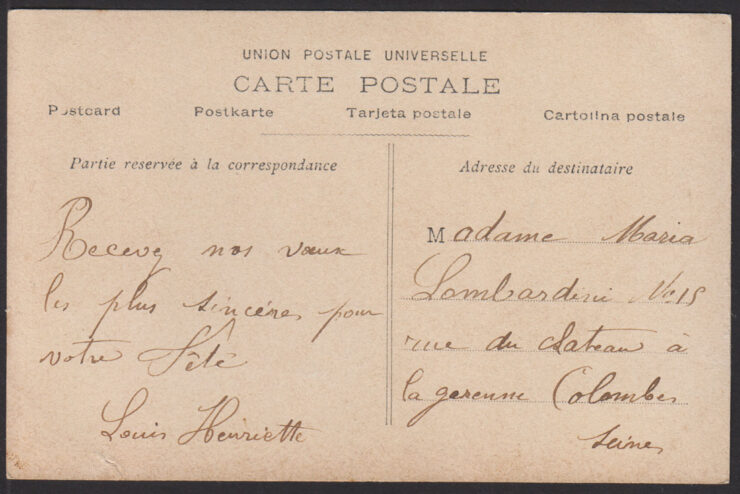 UNION POSTALE UNIVERSELLE
CARTE POSTALE
Postcard Postkarte Tarjeta postale Cartolina postale
Partie reservée à la correspondance
Recevez nos vœux
les plus sincères pour
votre Fête
Louis Henriette
Adresse du destinataire
Madame Maria
Lombardini No 15
rue du plateau à
la garenne Colombes
Seine